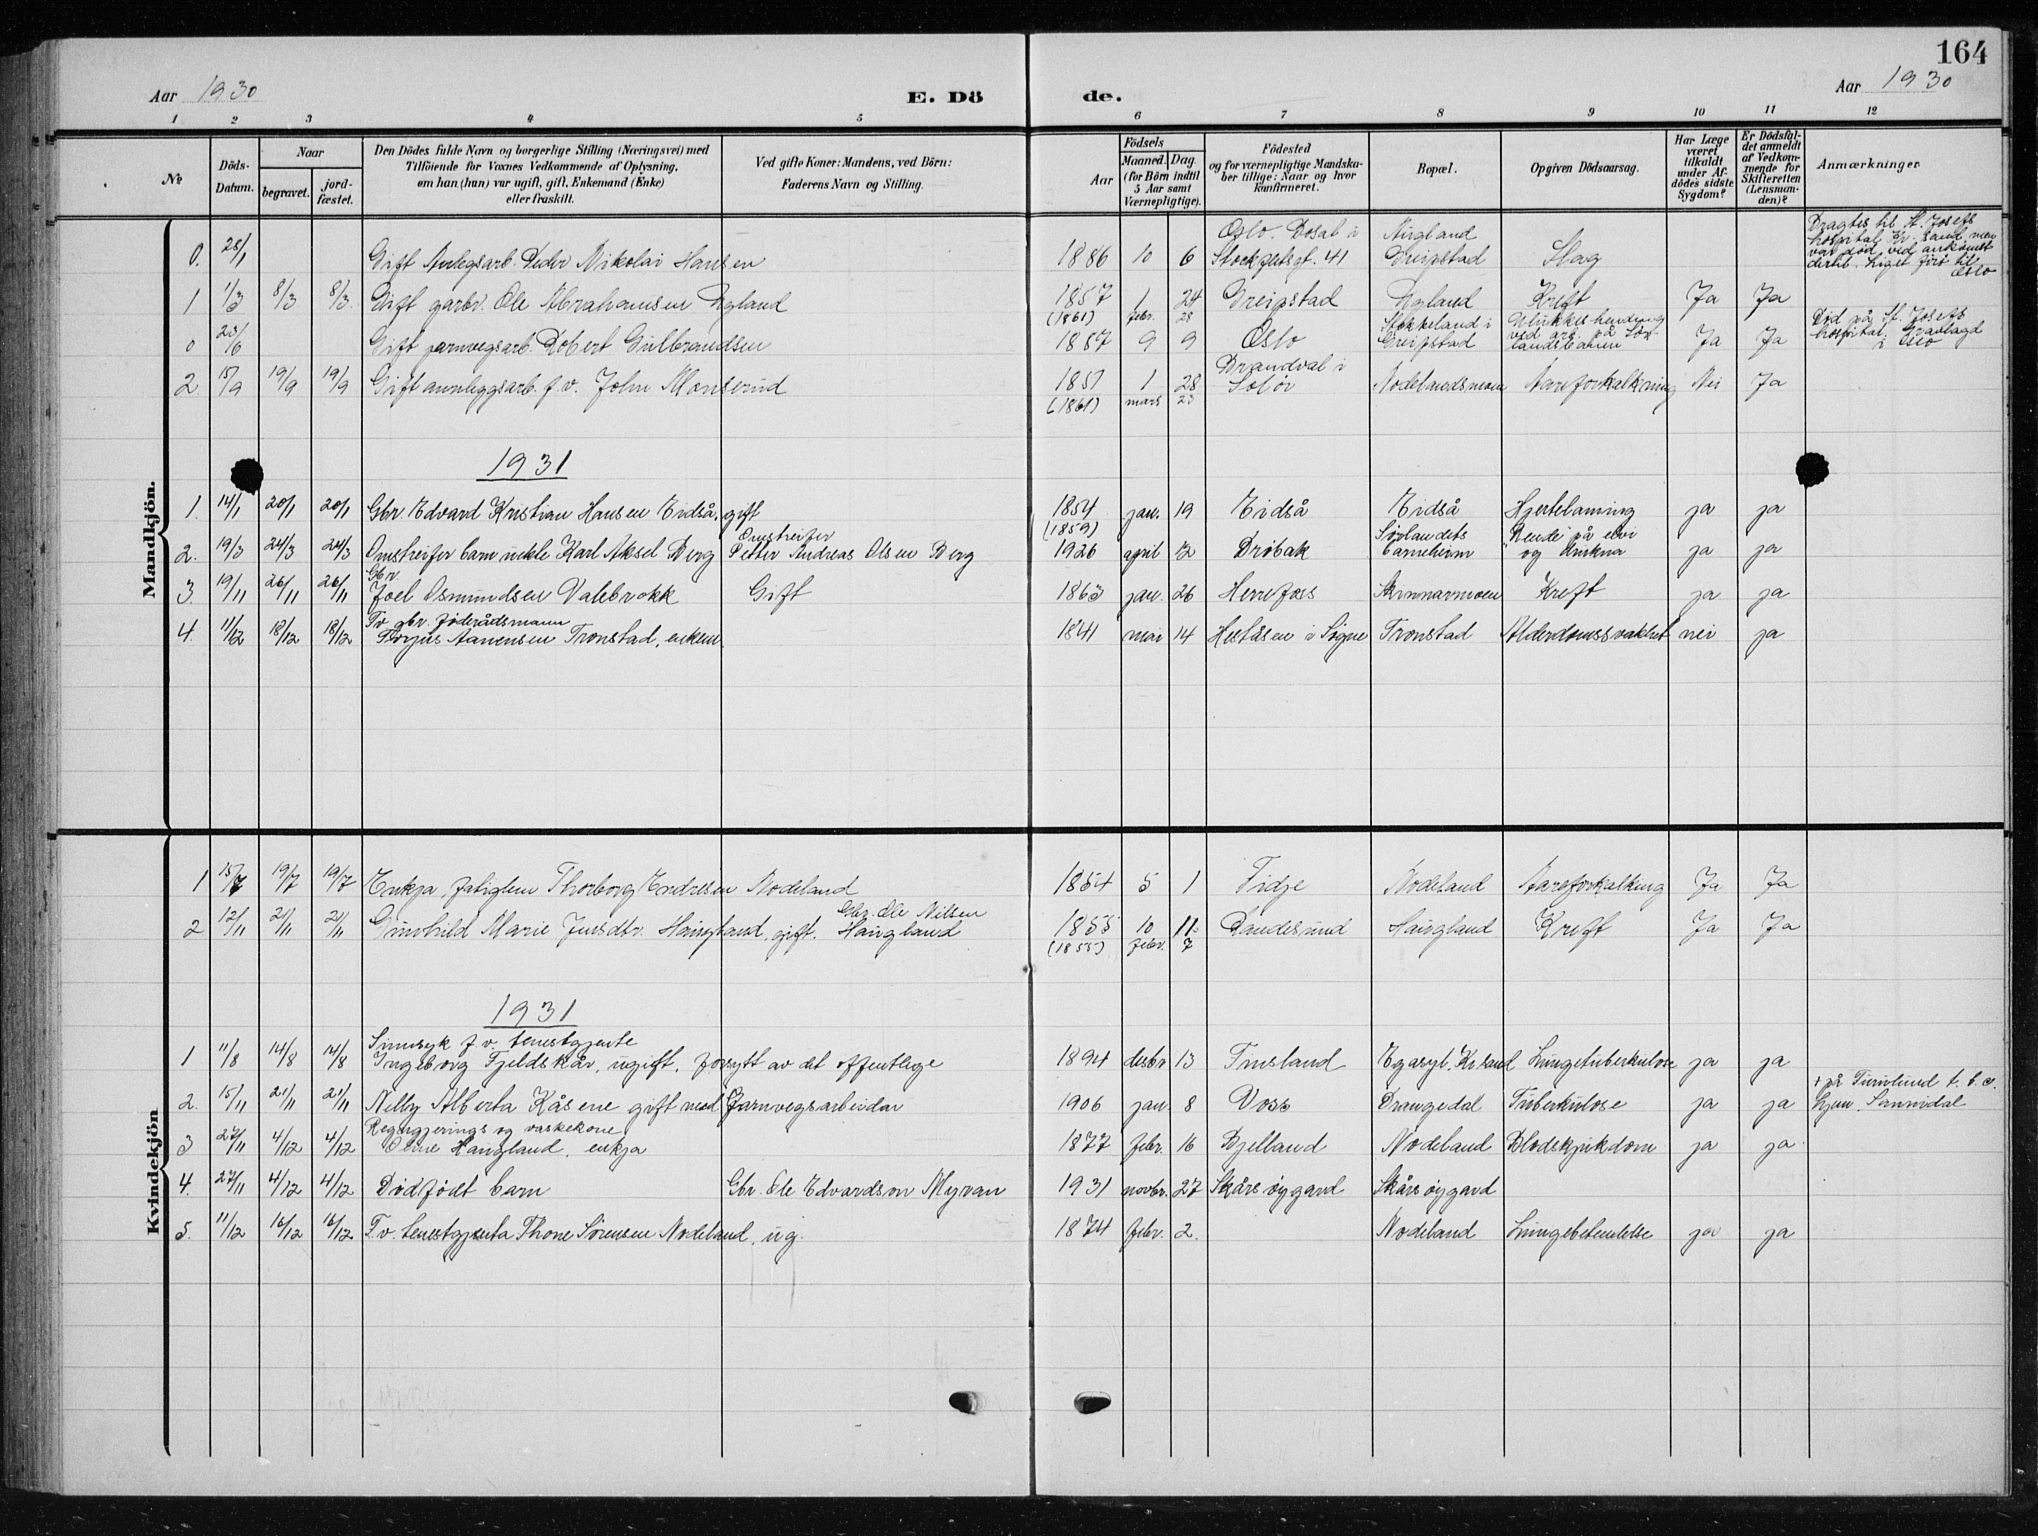 164
Aar 1930
E. Dö
de.
Aar 1930
1 2 3 4 5 6 7 8 9 10 11 12
№
Döds-Datum.
Naar
begravet.
jord-fæstet.
Den Dödes fulde Navn og borgerlige Stilling (Næringsvei) med
Tilföiende for Voxnes Vedkommende af Oplysning,
om han (hun) var ugift, gift, Enkemand (Enke)
eller fraskilt.
Ved gifte Koner: Mandens, ved Börn:
Faderens Navn og Stilling.
Födsels
Aar
Maaned. Dag
(for Börn indtil
5 Aar samt
Værnepligtige).
Födested
og for værnepligtige Mandska-
ber tillige: Naar og hvor
konfirmeret.
Bopæl.
Opgiven Dödsaarsag.
Har Læge
været
tilkaldt
under Af-
dödes sidste
Sygdom?
Er Dödsfal-
det anmeldt
af Vedkom-
mende for
Skifteretten
(Lensman-
den)?
Anmærkninger.
Mandkjön.
0. 28/1 Gift Anlegsarb. Peder Nikolai Hansen 1886 10 6 Oslo. Bosat i Stockfletsgt. 41 Greipstad Slag Bragtes til St. Josefs hospital Kr.sand, men var död ved ankomst dertil. Liget förs til Oslo
1 1/3 8/3 8/3 Gift garbr. Ole Abrahamsen 1857 (1861) 1 febr. 24 28 Greipstad Kreft Ja Ja
0 23/6 Gift jarnvegsarb. Robert Gulbrandsen 1887 9 9 Oslo Stokkeland i Greipstad Ulukkeshending ved arb. på Sörlandsbanen Ja Ja Död på St. Josefs hospital. Gravlagd i Oslo
2 15/9 19/9 19/9 Gift annleggsarb. f.v. John Monserud 1857 (1861) 1 mars 28 23 Brandval i Solör Nodelandsmoen Aareforkalkning Nei Ja
1931
1. 14/1 20/1 20/1 Gbr. Edvard Kristian Hansen Eidså, gift 1854 (1859) jan. 19 Eidså Eidså Hjertelaming ja ja
2. 19/3 24/3 24/3 Omstreifer barn Karl Aksel Berg Omstreifer Petter Andreas Olsen Berg 1926 april 2 Dröbak Sörlandets barneheim ja ja
3. 19/11 26/11 26/11 Gbr. Joel Osmundsen Valebrokk Gift 1863 jan. 26 Herrefoss Skinnarmoen Kreft ja ja
4. 11/12 18/12 18/12 Fv. gbr. föderådsmann Torjus Aanensen Tronstad, enkem. 1841 mai 14 Heståsen i Sögne Tronstad Alderdomssvakhet nei ja
Kvindekjön
1 15/7 19/7 19/7 Enkja, Thorborg Endresen Nodeland 1854 5 1 Tidje Nodeland Aareforkalking Ja Ja
2 12/11 21/11 21/11 Gunhild Marie Jensdtr. Haugland, gift. Gbr. Ole Nilsen Haugland 1853 (1855) 10 febr. 11. 7 Randesund Haugland Kreft Ja Ja
1931
1 11/8 14/8 14/8 Sinnsyk f.v. tenestgjente Ingeborg Fjeldskår, ugift, forsytt av det offentlege 1894 desbr 13 Finsland Egasyl. Kr.sand Lungetuberkulose ja ja
2. 15/11 21/11 21/11 Nelly Alberta Kåsene gift med Jarnvegsarbeidar 1906 jan. 8 Voss Drangedal Tuberkulose ja ja + på Furulund t.b.c. hjem. Sannidal
3 27/11 4/12 4/12 Reingjerings og vaskekone Oline Haugland, enkja 1877 febr. 16 Bjelland Nodeland Blodskjukdom ja ja
4. 27/11 4/12 4/12 Dödfödt barn Gbr. Ole Edvardson Myran 1931 novbr. 27 Skårsöygard Skårsöygard
5. 11/12 16/12 16/12 F.v. tenestgjenta Thone Sörensen Nodeland, ug. 1874 febr. 2. Nodeland Lungebetendelse ja ja